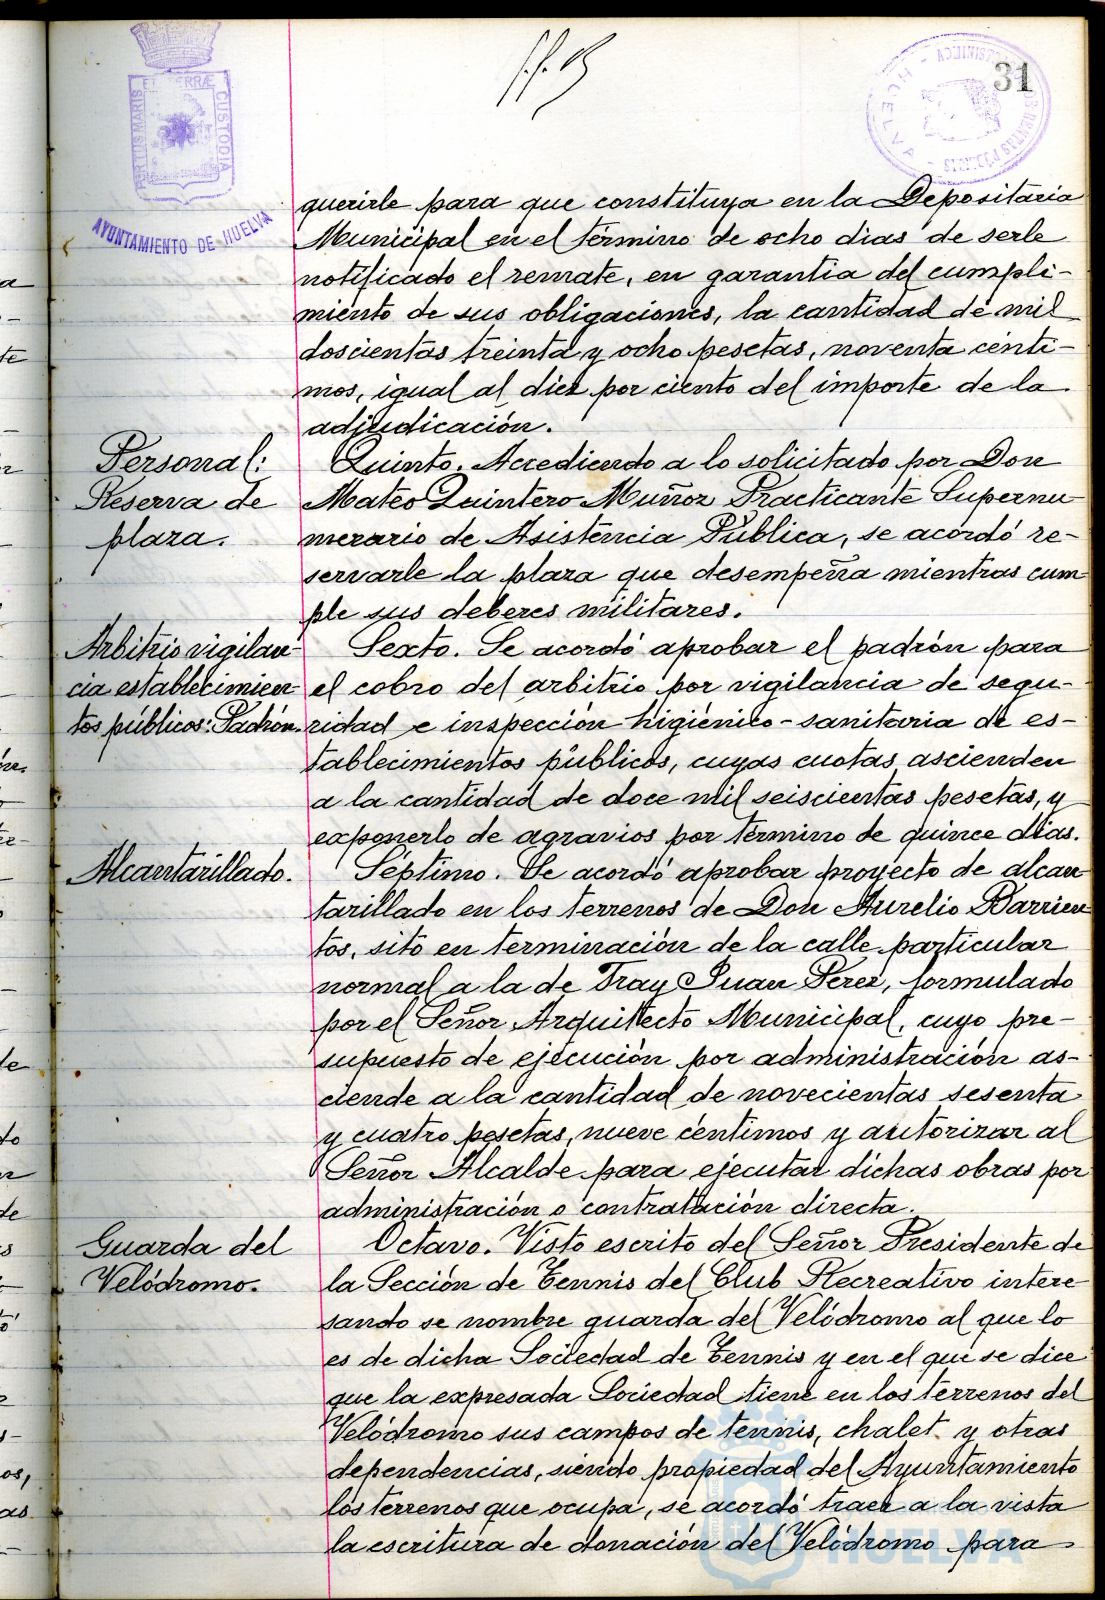 31
PORTUS MARIS ET TERRÆ CUSTODIA
AYUNTAMIENTO DE HUELVA
HUELVA
querirle para que constituya en la Depositaria
Municipal en el término de ocho dias de serle
notificado el remate, en garantia del cumpli-
miento de sus obligaciones, la cantidad de mil
doscientas treinta y ocho pesetas, noventa cénti-
mos, igual al diez por ciento del importe de la
adjudicación.
Personal:
Reserva de
plaza.
Quinto. Accediendo a lo solicitado por Don
Mateo Quintero Muñoz Practicante Supernu-
merario de Asistencia Pública, se acordó re-
servarle la plaza que desempeña mientras cum-
ple sus deberes militares.
Arbitrio vigilan-
cia establecimien-
tos públicos: Padrón.
Sexto. Se acordó aprobar el padrón para
el cobro del arbitrio por vigilancia de segu-
ridad e inspección higiénico-sanitaria de es-
tablecimientos públicos, cuyas cuotas ascienden
a la cantidad de doce mil seiscientas pesetas, y
exponerlo de agravios por término de quince dias.
Alcantarillado.
Séptimo. Se acordó aprobar proyecto de alcan-
tarillado en los terrenos de Don Aurelio Barrien-
tos, sito en terminación de la calle particular
normal a la de Fray Juan Pérez, formulado
por el Señor Arquitecto Municipal, cuyo pre-
supuesto de ejecución por administración as-
ciende a la cantidad de novecientas sesenta
y cuatro pesetas, nueve céntimos y autorizar al
Señor Alcalde para ejecutar dichas obras por
administración o contratación directa.
Guarda del
Velódromo.
Octavo. Visto escrito del Señor Presidente de
la Sección de Tennis del Club Recreativo intere-
sando se nombre guarda del Velódromo al que lo
es de dicha Sociedad de Tennis y en el que se dice
que la expresada Sociedad tiene en los terrenos del
Velódromo sus campos de tennis, chalet y otras
dependencias, siendo propiedad del Ayuntamiento
los terrenos que ocupa, se acordó traer a la vista
la escritura de donación del Velódromo para
HUELVA